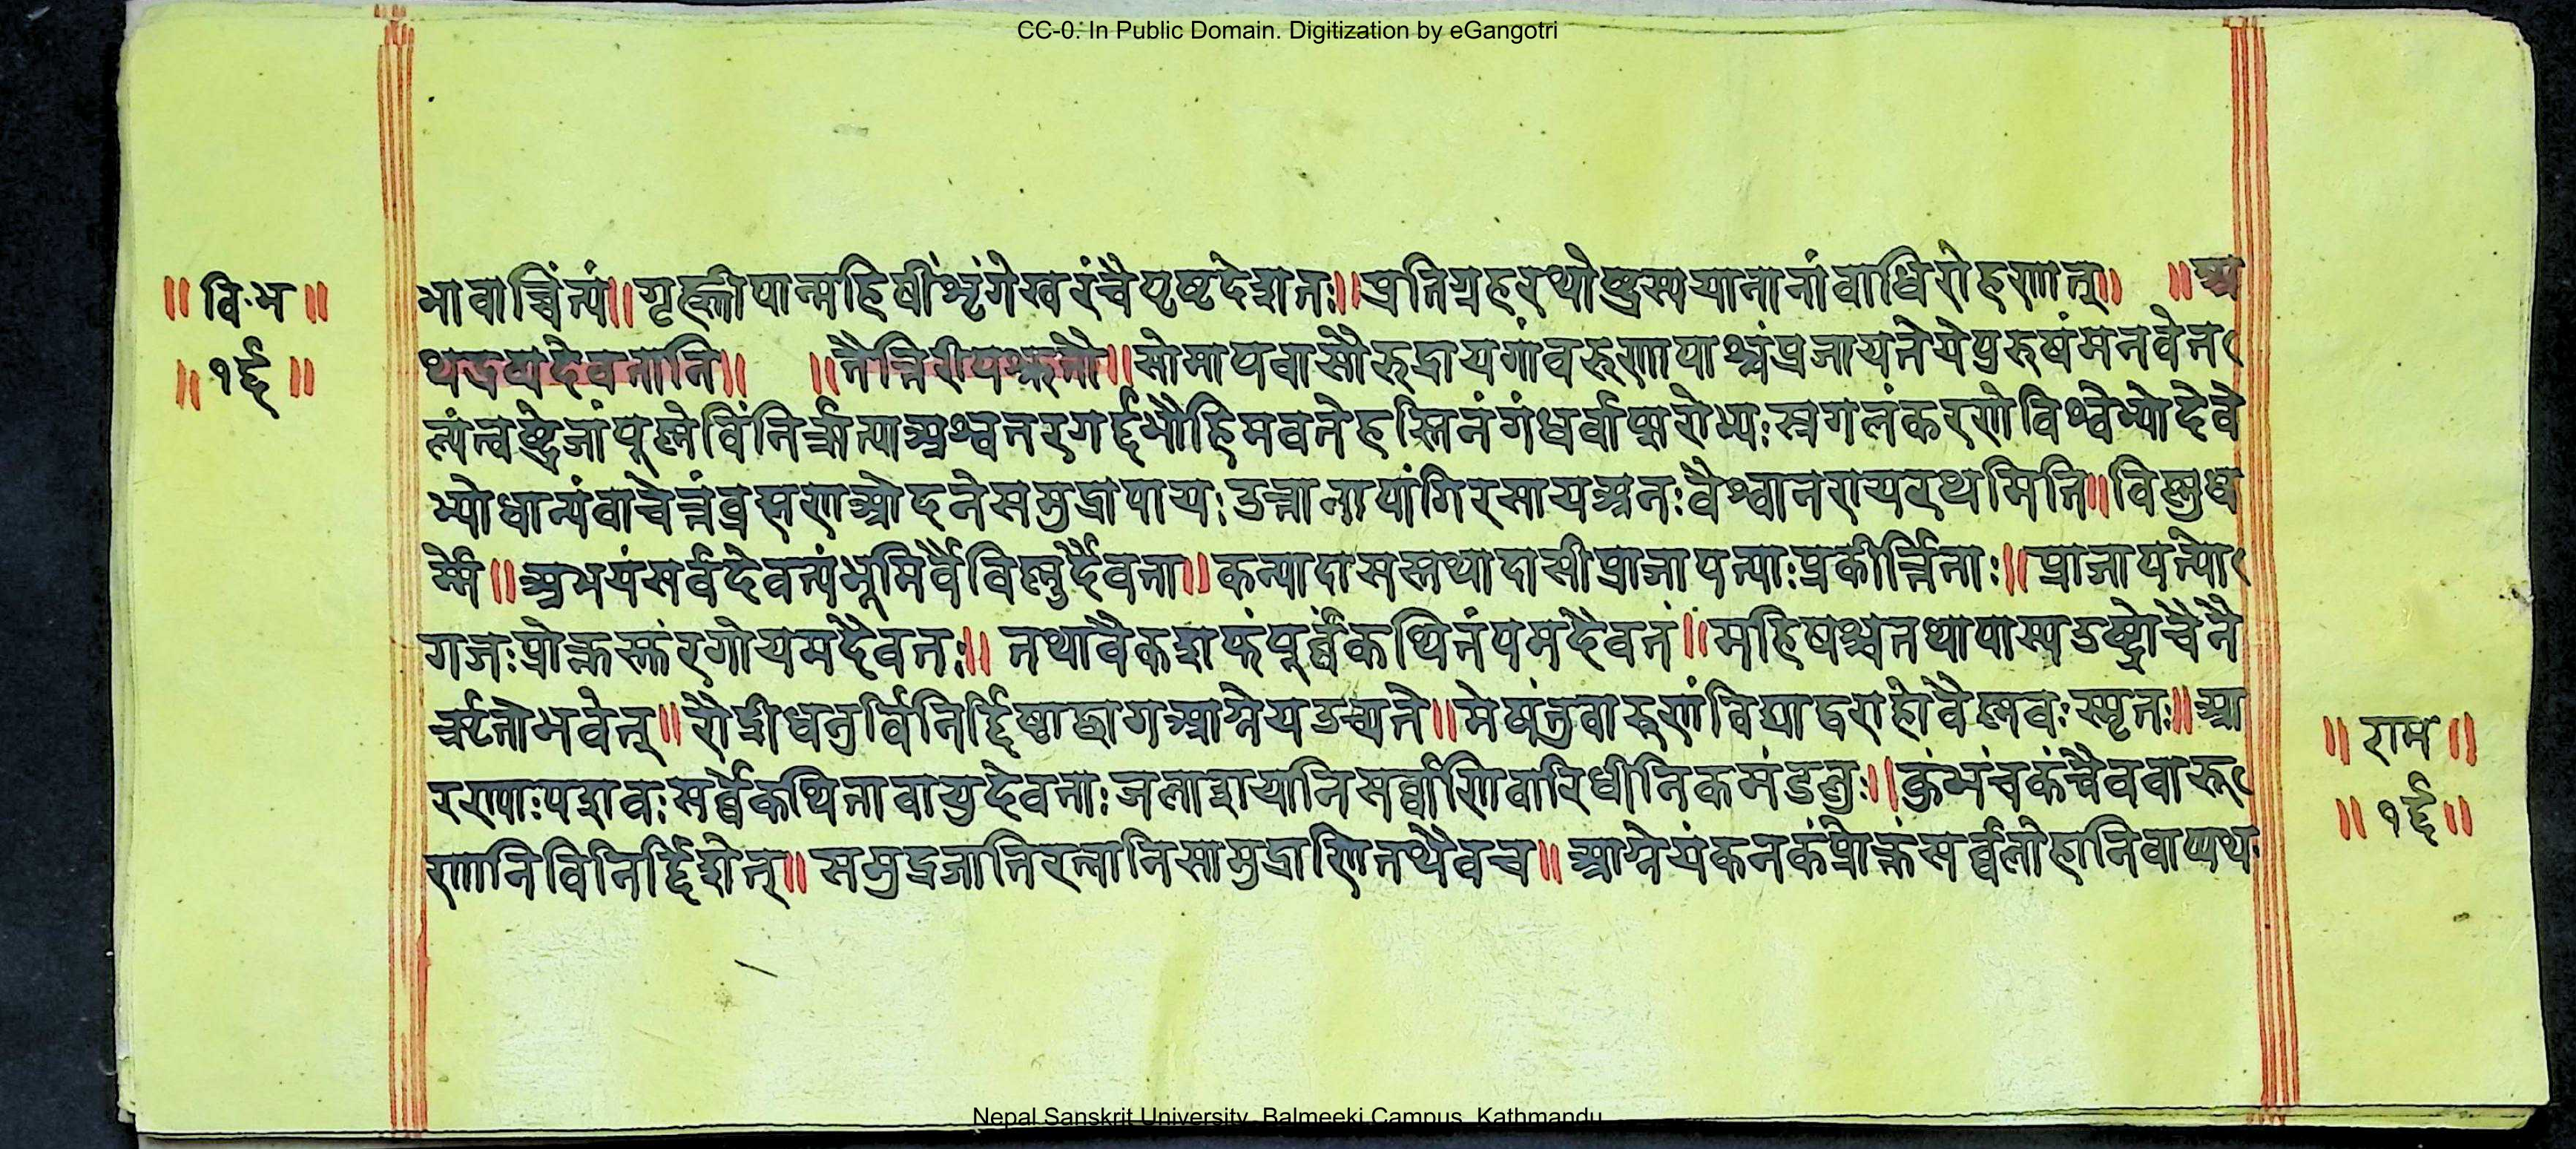 CC-0. In Public Domain. Digitization by eGangotri
॥ वि·भ ॥
॥ १६ ॥
भावाच्चिंत्यं॥ गृह्णीयान्महिषीं शृंगे खरं वै पृष्टदेशतः॥ प्रतिग्रहरथोष्ट्रस्य यानानां वाधिरोहणात्॥ ॥ अ
थ द्रव्यदेवतानि॥ ॥ तैत्तिरीयश्रुतौ॥ सोमाय वासो रुद्राय गां वरुणायाश्वं प्रजायतेये पुरुषं मनवे त
ल्पं त्वष्ट्रेजां पूष्णेविं निर्ऋत्याअश्वतरगर्द्दभौ हिमवते हस्तिनं गंधर्वाप्सरोभ्यः स्रगलंकरणे विश्वेभ्यो देवे
भ्यो धान्यं वाचेन्नं ब्रह्मणओदने समुद्रायापः उत्तानायांगिरसायअनः वैश्वानराय रथमिति॥ विष्णुध
र्मे॥ अभयं सर्वदेवत्यं भूमिर्वै विष्णुर्दैवता॥ कन्या दासस्तथा दासी प्राजापत्याः प्रकीर्त्तिताः॥ प्राजापत्यो
गजः प्रोक्तस्तुरगो यमदैवतः॥ तथा वैकशफं पूर्वं कथितं यमदैवतं॥ महिषश्च तथा याम्य उष्ट्रो वै नै
र्ऋतो भवेत्॥ रौद्री धेनुर्विनिर्द्दिष्टा छाग आग्नेय उच्यते॥ मेषं तु वारुणं विद्याद्वराहो वैष्णवः स्मृतः॥ आ
रण्याः पशवः सर्व्वे कथिता वायुदेवताः जलाशयानि सर्व्वाणि वारिधीनि कमंडलुः॥ कुंभं च कं चैव वारु
णानि विनिर्द्दिशेत्॥ समुद्रजानि रत्नानि सामुद्राणि तथैव च॥ आग्नेयं कनकं प्रोक्तं सर्व्वलोहानि वाप्यथ
॥ राम ॥
॥ १६ ॥
Nepal Sanskrit University, Balmeeki Campus, Kathmandu